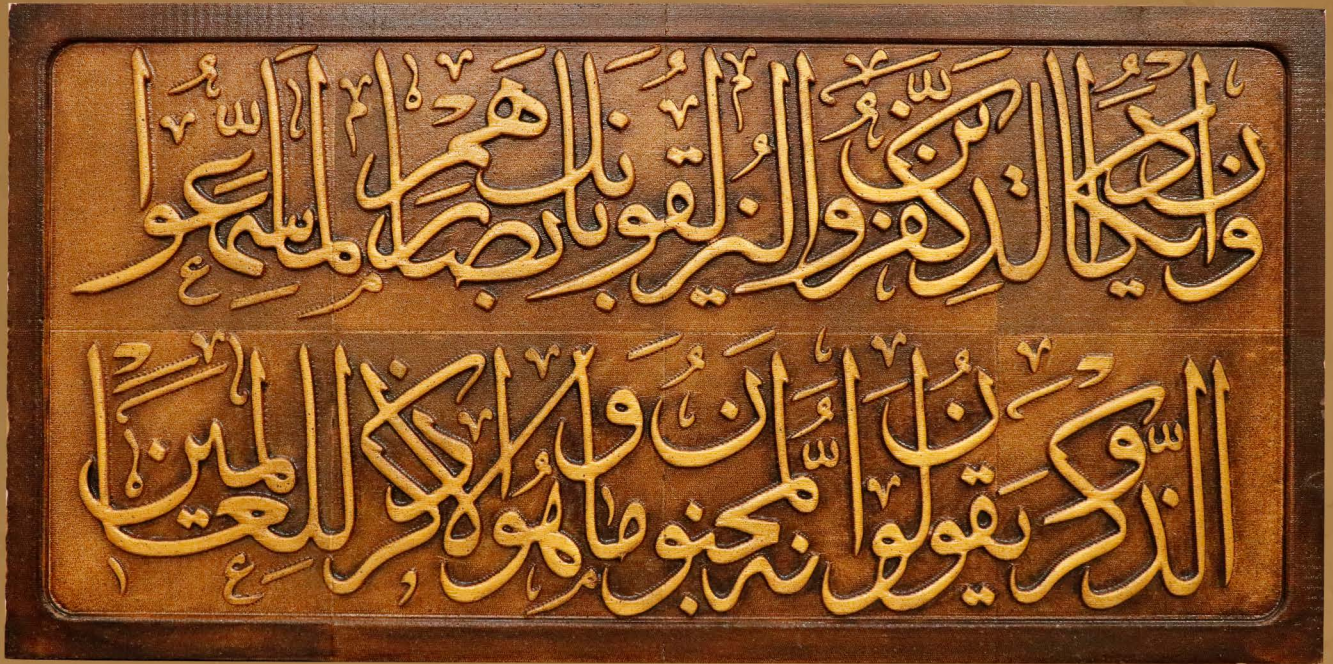 وَإِن يَكَادُ الَّذِينَ كَفَرُوا لَيُزْلِقُونَكَ بِأَبْصَارِهِمْ لَمَّا سَمِعُوا
الذِّكْرَ وَيَقُولُونَ إِنَّهُ لَمَجْنُونٌ وَمَا هُوَ إِلَّا ذِكْرٌ لِّلْعَالَمِينَ